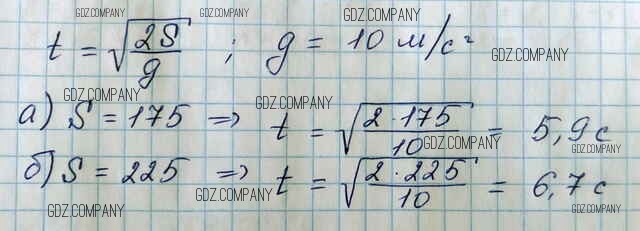 GDZ.COMPANY GDZ.COMPANY GDZ.COMPANY
t = √(2S/g) ; g = 10 м/с²
GDZ.COMPANY
GDZ.COMPANY GDZ.COMPANY
а) S = 175 => t = √(2·175/10) = 5,9 с
GDZ.COMPANY GDZ.COMPANY
б) S = 225 => t = √(2·225/10) = 6,7 с
GDZ.COMPANY GDZ.COMPANY GDZ.COMPANY